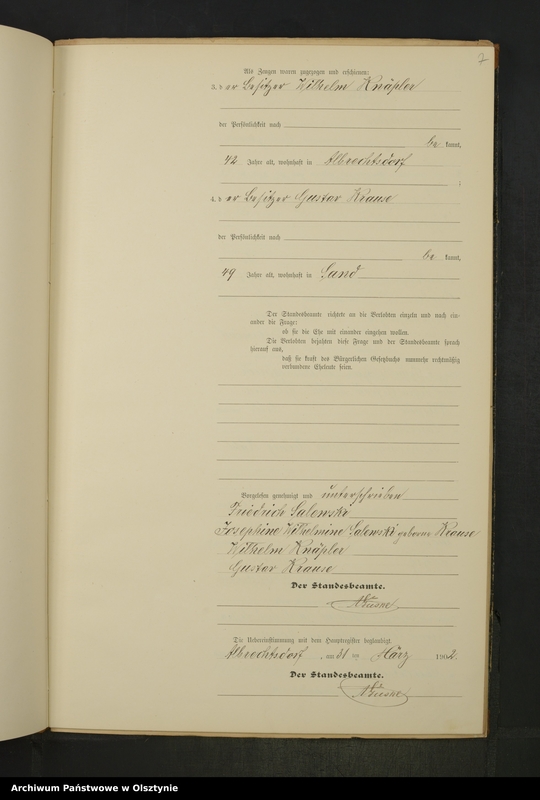 7
Als Zeugen waren zugezogen und erschienen:
3. der Besitzer Wilhelm Knäpler
der Persönlichkeit nach
be kannt,
42 Jahre alt, wohnhaft in Albrechtsdorf
;
4. der Besitzer Gustav Krause
der Persönlichkeit nach
be kannt,
49 Jahre alt, wohnhaft in Sand
Der Standesbeamte richtete an die Verlobten einzeln und nach ein-
ander die Frage:
ob sie die Ehe mit einander eingehen wollen.
Die Verlobten bejahten diese Frage und der Standesbeamte sprach
hierauf aus,
daß sie kraft des Bürgerlichen Gesetzbuchs nunmehr rechtmäßig
verbundene Eheleute seien.
Vorgelesen genehmigt und unterschrieben
Friedrich Salewski
Josephine Wilhelmine Salewski geborene Krause
Wilhelm Knäpler
Gustav Krause
Der Standesbeamte.
Die Uebereinstimmung mit dem Hauptregister beglaubigt.
Albrechtsdorf, am 31 ten März 1902.
Der Standesbeamte.
Archiwum Państwowe w Olsztynie